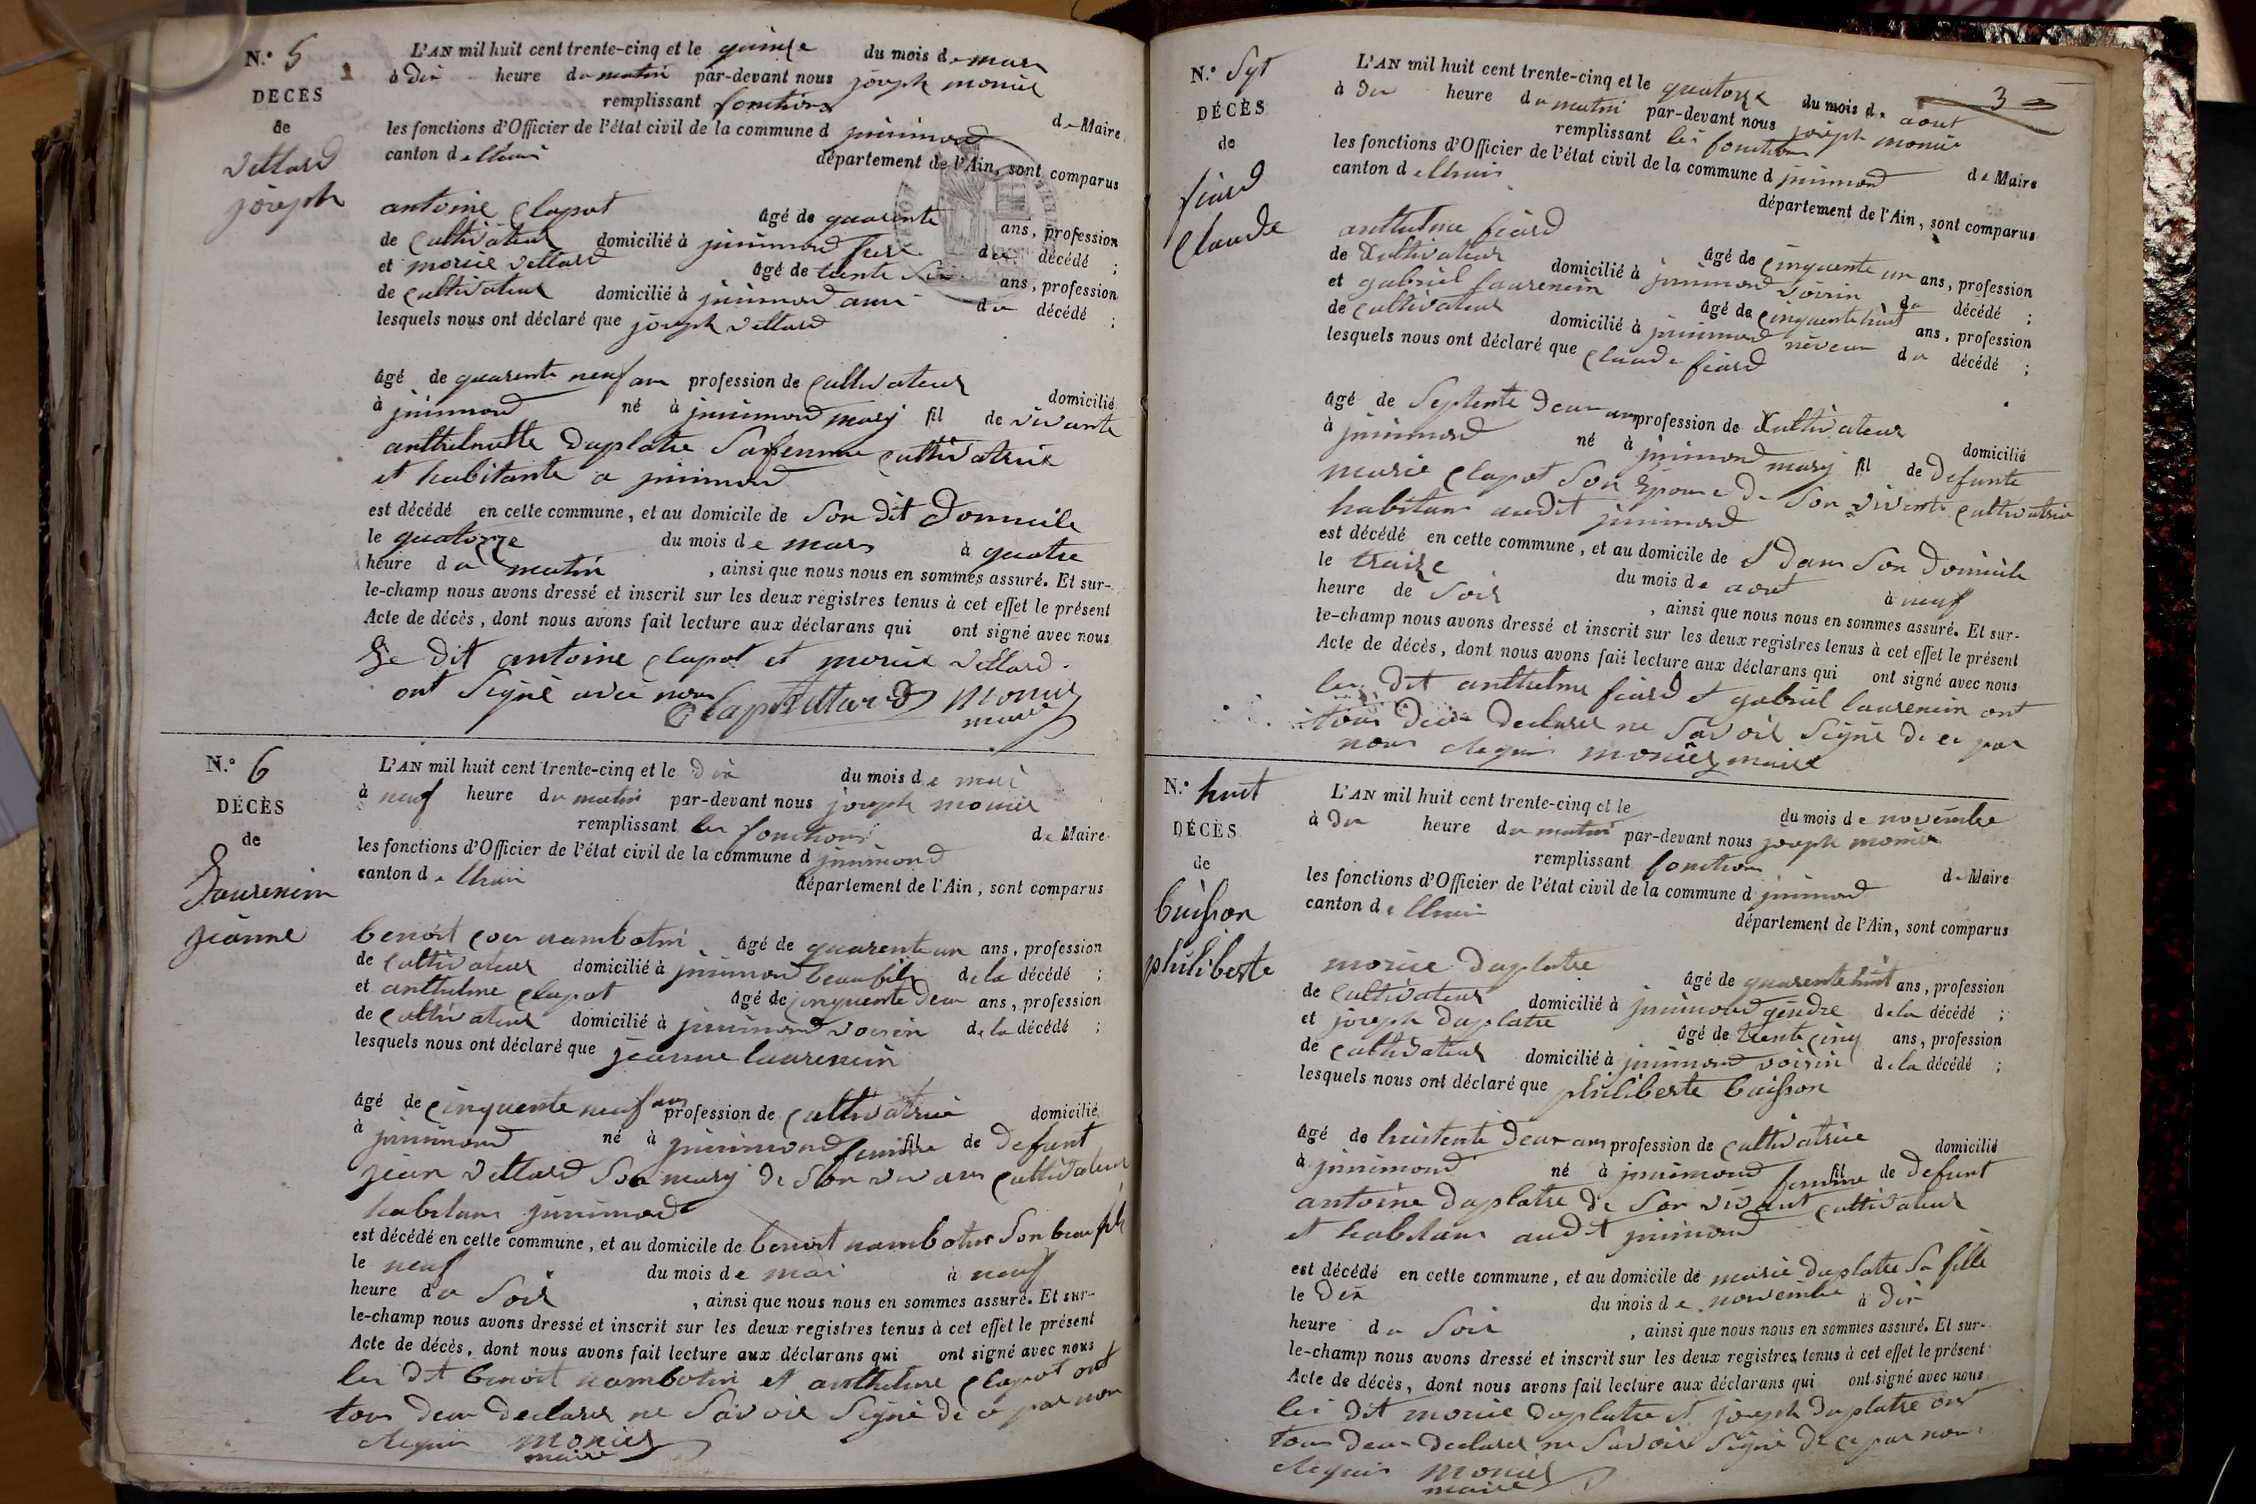 N.° 5
DECES
de
Vettard
joseph
L'AN mil huit cent trente-cinq et le quinse du mois de mars
à dix heure du matin par-devant nous joseph monier
remplissant fonctions de Maire
les fonctions d'Officier de l'état civil de la commune d jnnimond
canton de lhuis département de l'Ain, sont comparus
antoine Clapot âgé de quarente ans, profession
de Cultivateur domicilié à jnnimond du décédé ;
et morice Vettard âgé de trente ans, profession
de Cultivateur domicilié à jnnimond ami du décédé ;
lesquels nous ont déclaré que joseph Vettard
âgé de quarente neuf ans profession de Cultivateur domicilié
à jnnimond né à jnnimond mary fil de vivante
anthelmette Duplatre Sa femme Cultivatrice
et habitante a jnnimond
est décédé en cette commune, et au domicile de Son dit Domicile
le quatorze du mois de mars à quatre
heure du matin , ainsi que nous nous en sommes assuré. Et sur-
le-champ nous avons dressé et inscrit sur les deux registres tenus à cet effet le présent
Acte de décès, dont nous avons fait lecture aux déclarans qui ont signé avec nous
Le dit antoine Clapot et morice Vettard
ont Signé avec nous Clapot Vettard Monier
maire
N.° 6
DÉCÈS
de
Laurencin
jeanne
L'AN mil huit cent trente-cinq et le dix du mois de mai
à neuf heure du matin par-devant nous joseph monier
remplissant les fonctions de Maire
les fonctions d'Officier de l'état civil de la commune d jnnimond
canton de lhuis département de l'Ain, sont comparus
benoit nambotin âgé de quarente un ans, profession
de Cultivateur domicilié à jnnimond beaufils de la décédé ;
et anthelme Clapot âgé de cinquente deux ans, profession
de Cultivateur domicilié à jnnimond voisin de la décédé ;
lesquels nous ont déclaré que jeanne laurencin
âgé de cinquente neuf ans profession de Cultivatrice domicilié
à jnnimond né à jnnimond femme fil de Defunt
jean Vettard Son mary de Son vivant Cultivateur
habitant jnnimond
est décédé en cette commune, et au domicile de benoit nambotin Son beaufils
le neuf du mois de mai à neuf
heure du Soir , ainsi que nous nous en sommes assuré. Et sur-
le-champ nous avons dressé et inscrit sur les deux registres tenus à cet effet le présent
Acte de décès, dont nous avons fait lecture aux déclarans qui ont signé avec nous
les dit benoit nambotin et anthelme Clapot ont
tous deux declaré ne Savoir Signé de ce par nous
Requis Monier
maire
3
N.° Sept
DÉCÈS
de
fiard
Claude
L'AN mil huit cent trente-cinq et le quatorze du mois de aout
à dix heure du matin par-devant nous joseph monier
remplissant les fonctions de Maire
les fonctions d'Officier de l'état civil de la commune d jnnimond
canton de lhuis département de l'Ain, sont comparus
anthelme fiard âgé de cinquente un ans, profession
de Cultivateur domicilié à jnnimond voisin du décédé ;
et gabriel laurencin âgé de cinquente huit ans, profession
de Cultivateur domicilié à jnnimond neveux du décédé ;
lesquels nous ont déclaré que Claude fiard
âgé de Septente deux ans profession de Cultivateur domicilié
à jnnimond né à jnnimond mary fil de Defunte
marie Clapot Son Epouse de Son vivent Cultivatrice
habitant audit jnnimond
est décédé en cette commune, et au domicile de Dans Son Domicile
le traize du mois de aout à neuf
heure de Soir , ainsi que nous nous en sommes assuré. Et sur-
le-champ nous avons dressé et inscrit sur les deux registres tenus à cet effet le présent
Acte de décès, dont nous avons fait lecture aux déclarans qui ont signé avec nous
les dit anthelme fiard et gabriel laurencin ont
tous deux declaré ne Savoir Signé de ce par
nous Requis monier maire
N.° huit
DÉCÈS
de
buisson
philiberte
L'AN mil huit cent trente-cinq et le du mois de novembre
à dix heure du matin par-devant nous joseph monier
remplissant fonction de Maire
les fonctions d'Officier de l'état civil de la commune d jnnimond
canton de lhuis département de l'Ain, sont comparus
morice Duplatre âgé de quarente huit ans, profession
de Cultivateur domicilié à jnnimond gendre de la décédé ;
et joseph Duplatre âgé de trente cinq ans, profession
de Cultivateur domicilié à jnnimond voisin de la décédé ;
lesquels nous ont déclaré que philiberte buisson
âgé de huitente deux ans profession de Cultivatrice domicilié
à jnnimond né à jnnimond femme fil de Defunt
antoine Duplatre de Son vivant Cultivateur
et habitant audit jnnimond
est décédé en cette commune, et au domicile de marie Duplatre Sa fille
le Dix du mois de novembre à dix
heure du Soir , ainsi que nous nous en sommes assuré. Et sur-
le-champ nous avons dressé et inscrit sur les deux registres tenus à cet effet le présent
Acte de décès, dont nous avons fait lecture aux déclarans qui ont signé avec nous
les dit morice Duplatre et joseph Duplatre ont
tous deux declaré ne Savoir Signé de ce par nous
Requis Monier
maire